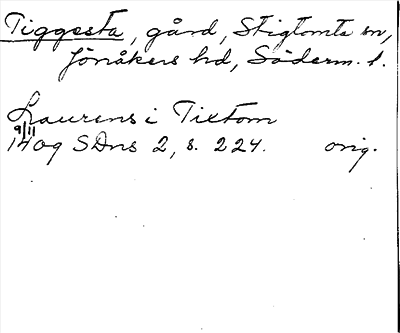 Tiggesta, gård, Stigtomta sn,
Jönåkers hd, Söderm. l.
Laurens i Tixtom
9/11
1409 SDns 2, s. 224. orig.